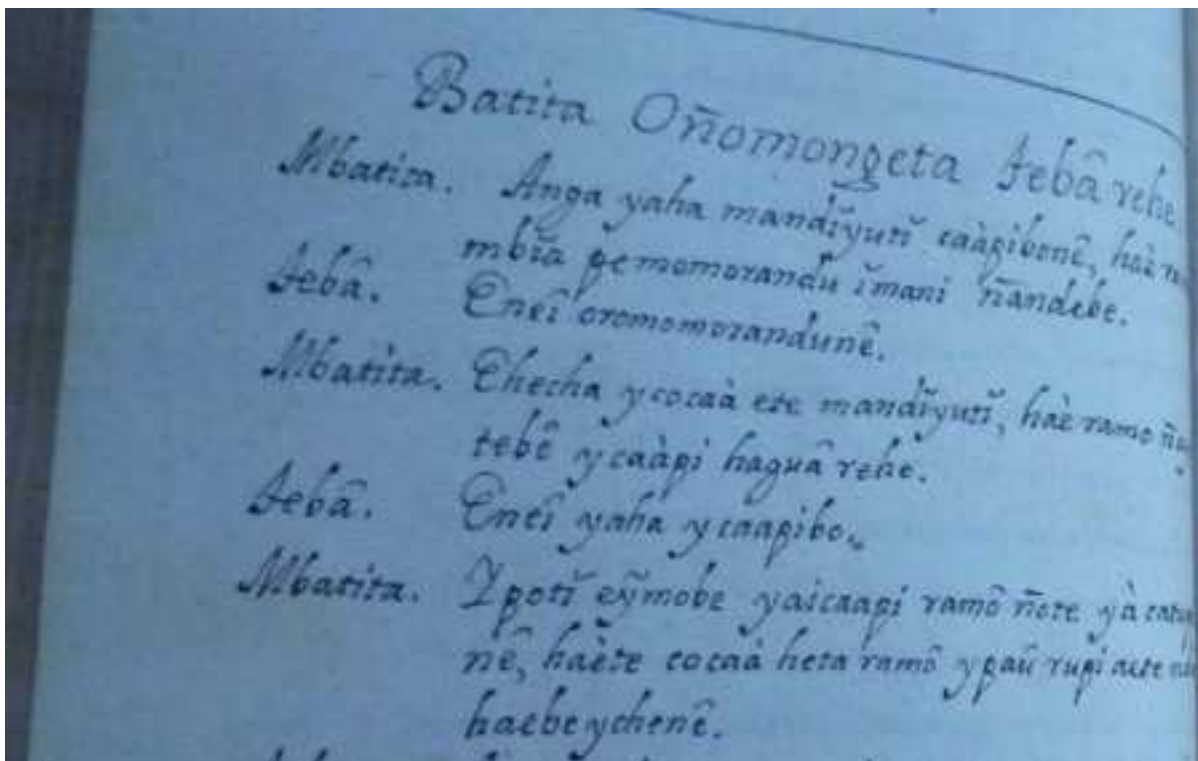 Batita Oñomongeta tebâ rehe
Mbatita. Anga yaha mandĭyutĭ caàpibonê, haè
mbĭa pemomorandu ĭmani ñandebe.
tebâ. Eneî oromomorandunê.
Mbatita. Ehecha ycocaà ete mandĭyutĭ, haè ramo
tebê ycaàpi haguâ rehe.
tebâ. Eneî yaha ycaapibo.
Mbatita. Ypotĭ eỹmobe yaicaapi ramô ñote yà
nê, haète cocaà heta ramô ypaû rupi aete
haebeychenê.